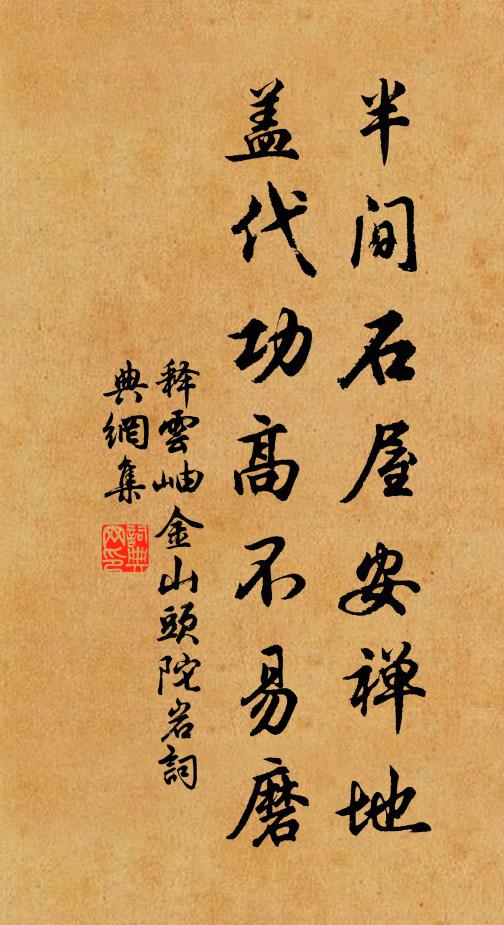 半间石屋安禅地
盖代功高不易磨
释雲岫金山頭陀岩詞
典網集
詞典
网印